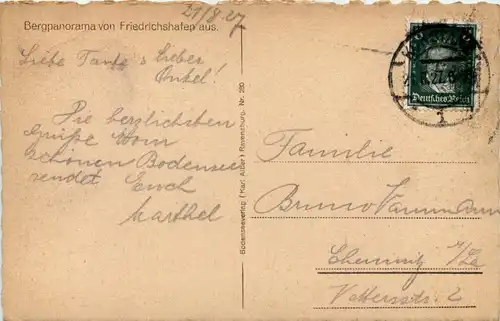 Bergpanorama von Friedrichshafen aus.
21/8 27
Liebe Tante & Lieber
Onkel!
Die herzlichsten
Grüße vom
schönen Bodensee
sendet Euch
Marthel
Bodenseeverlag (Karl Alber) Ravensburg. Nr. 290
Deutsches Reich
1
Familie
Bruno
Chemnitz i/Sa
2